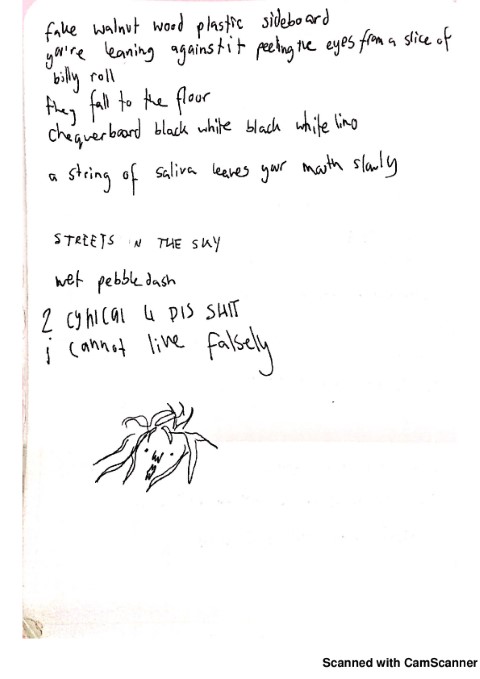 fake walnut wood plastic sideboard
you're leaning against it peeling the eyes from a slice of
billy roll
they fall to the floor
chequerboard black white black white lino
a string of saliva leaves your mouth slowly
STREETS IN THE SKY
wet pebbledash
2 CYNICAL 4 DIS SHIT
i cannot live falsely
Scanned with CamScanner